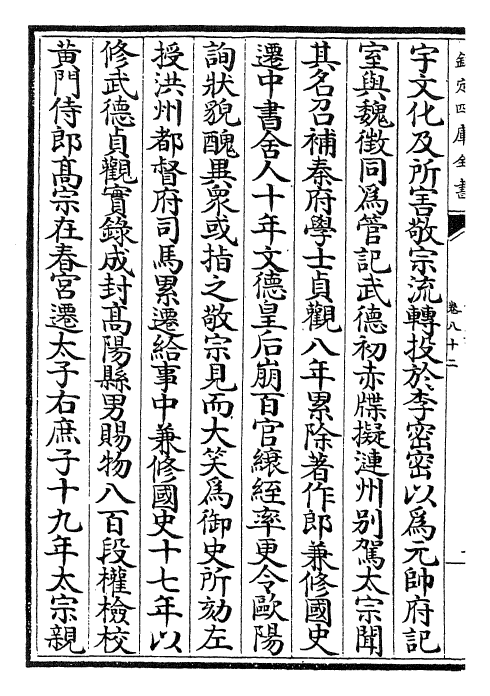 欽定四庫全書
卷八十二
宇文化及所害敬宗流轉投於李密密以為元帥府記
室與魏徴同為管記武德初赤牒擬漣州别駕太宗聞
其名召補秦府學士貞觀八年累除著作郎兼修國史
遷中書舍人十年文德皇后崩百官縗絰率更令歐陽
詢狀貌醜異衆或指之敬宗見而大笑為御史所劾左
授洪州都督府司馬累遷給事中兼修國史十七年以
修武德貞觀實錄成封髙陽縣男賜物八百段權檢校
黄門侍郎髙宗在春宮遷太子右庶子十九年太宗親